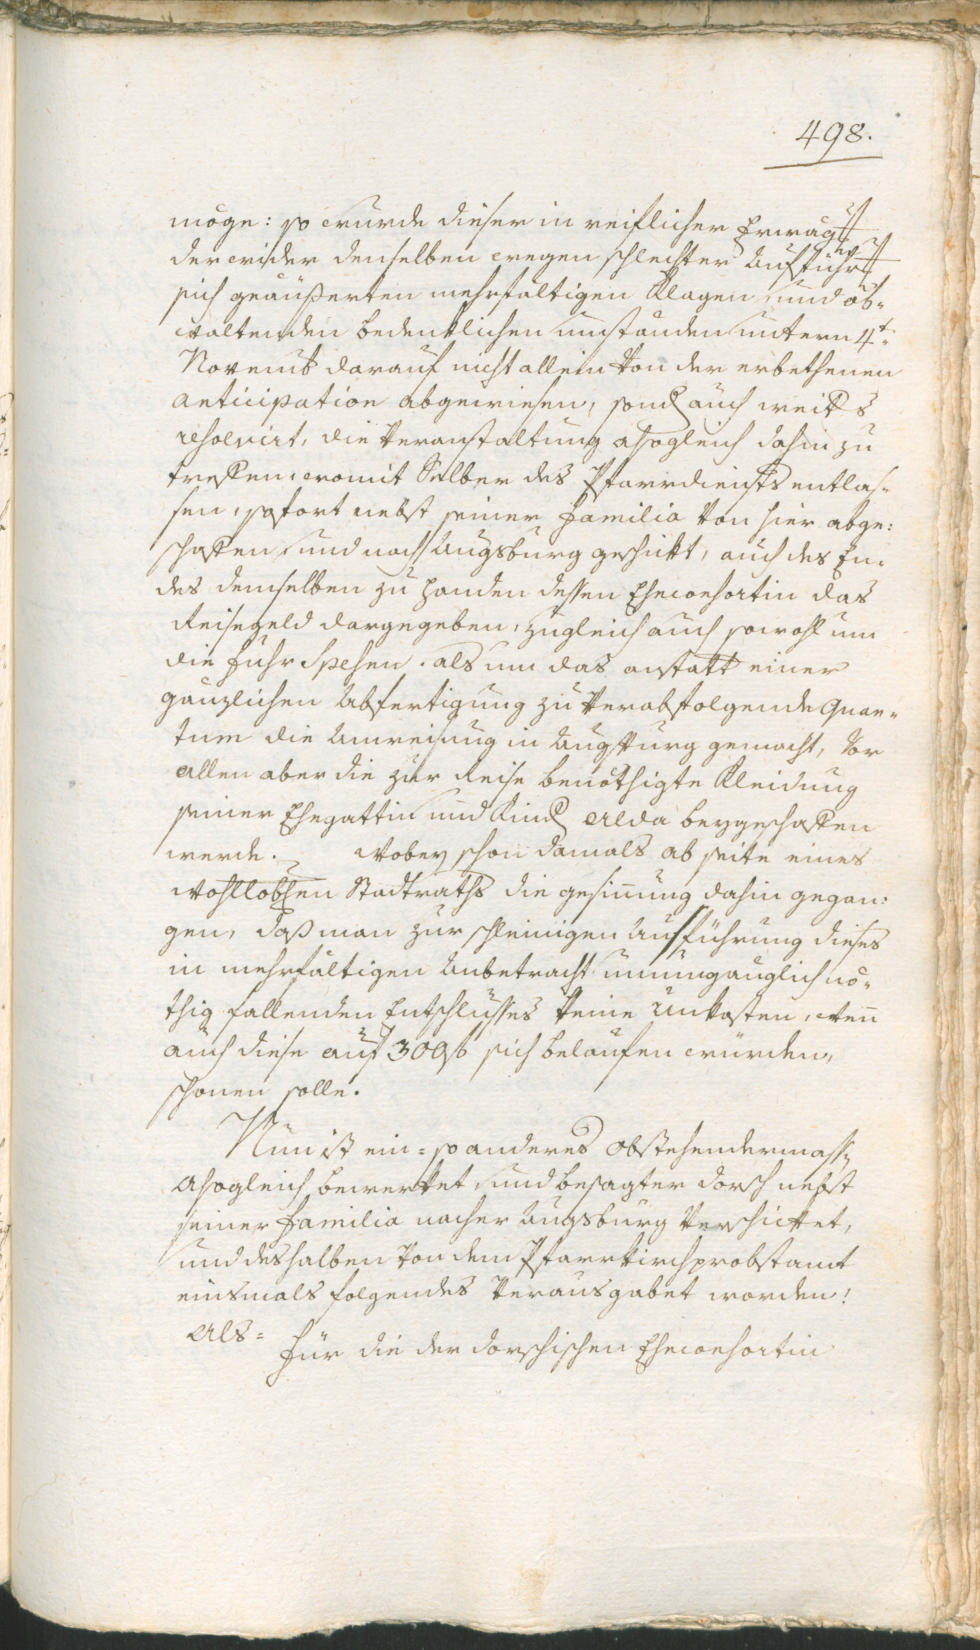 498.
möge: so wurde dieser in reiflicher Erwäg
der wider denselben wegen schlechter Aufführ
sich geäußerten mehrfältigen Klagen, und ob-
waltenden bedenklichen umständen untern 4t:
Novemb darauf nicht allein von der erbethenen
anticipation abgewiesen, sond auch weiters
resolvirt, die Veranstaltung alsogleich dahin zu
treffen, womit Selber des Pfarrdiensts entlas-
sen, sofort nebst seiner Familia von hier abge-
schaffen, und nach Augsburg geschikt, auch des En-
des demselben zu Handen dessen Eheconsortin das
Reisegeld dargegeben, zugleich auch sowohl um
die Fuhr Spesen, als um das anstatt einer
gänzlichen Abfertigung zu verabfolgende Quan-
tum die Anweisung in Augsburg gemacht, vor
allen aber die zur Reise benöthigte Kleidung
seiner Ehegattin und Kind alda beygeschaffen
werde. Wobey schon damals ab seite eines
Wohllobhen Stadtraths die gesinnung dahin gegan-
gen, daß man zur schleinigen Ausführung dieses
in mehrfältigen Anbetracht unumgänglich nö-
thig fallenden Entschlußes keine Unkosten, wenn
auch diese auf 300 f sich belaufen würden,
schonen solle.
Nun ist ein- so anderes obstehendermassen
alsogleich bewerket, und besagter Dorsch nebst
seiner Familia nacher Augsburg verschicket,
und deshalben von dem Pfarrkirchprobstamt
einsmals folgendes verausgabet worden!
Als=
Für die der Dorschischen Eheconsortin